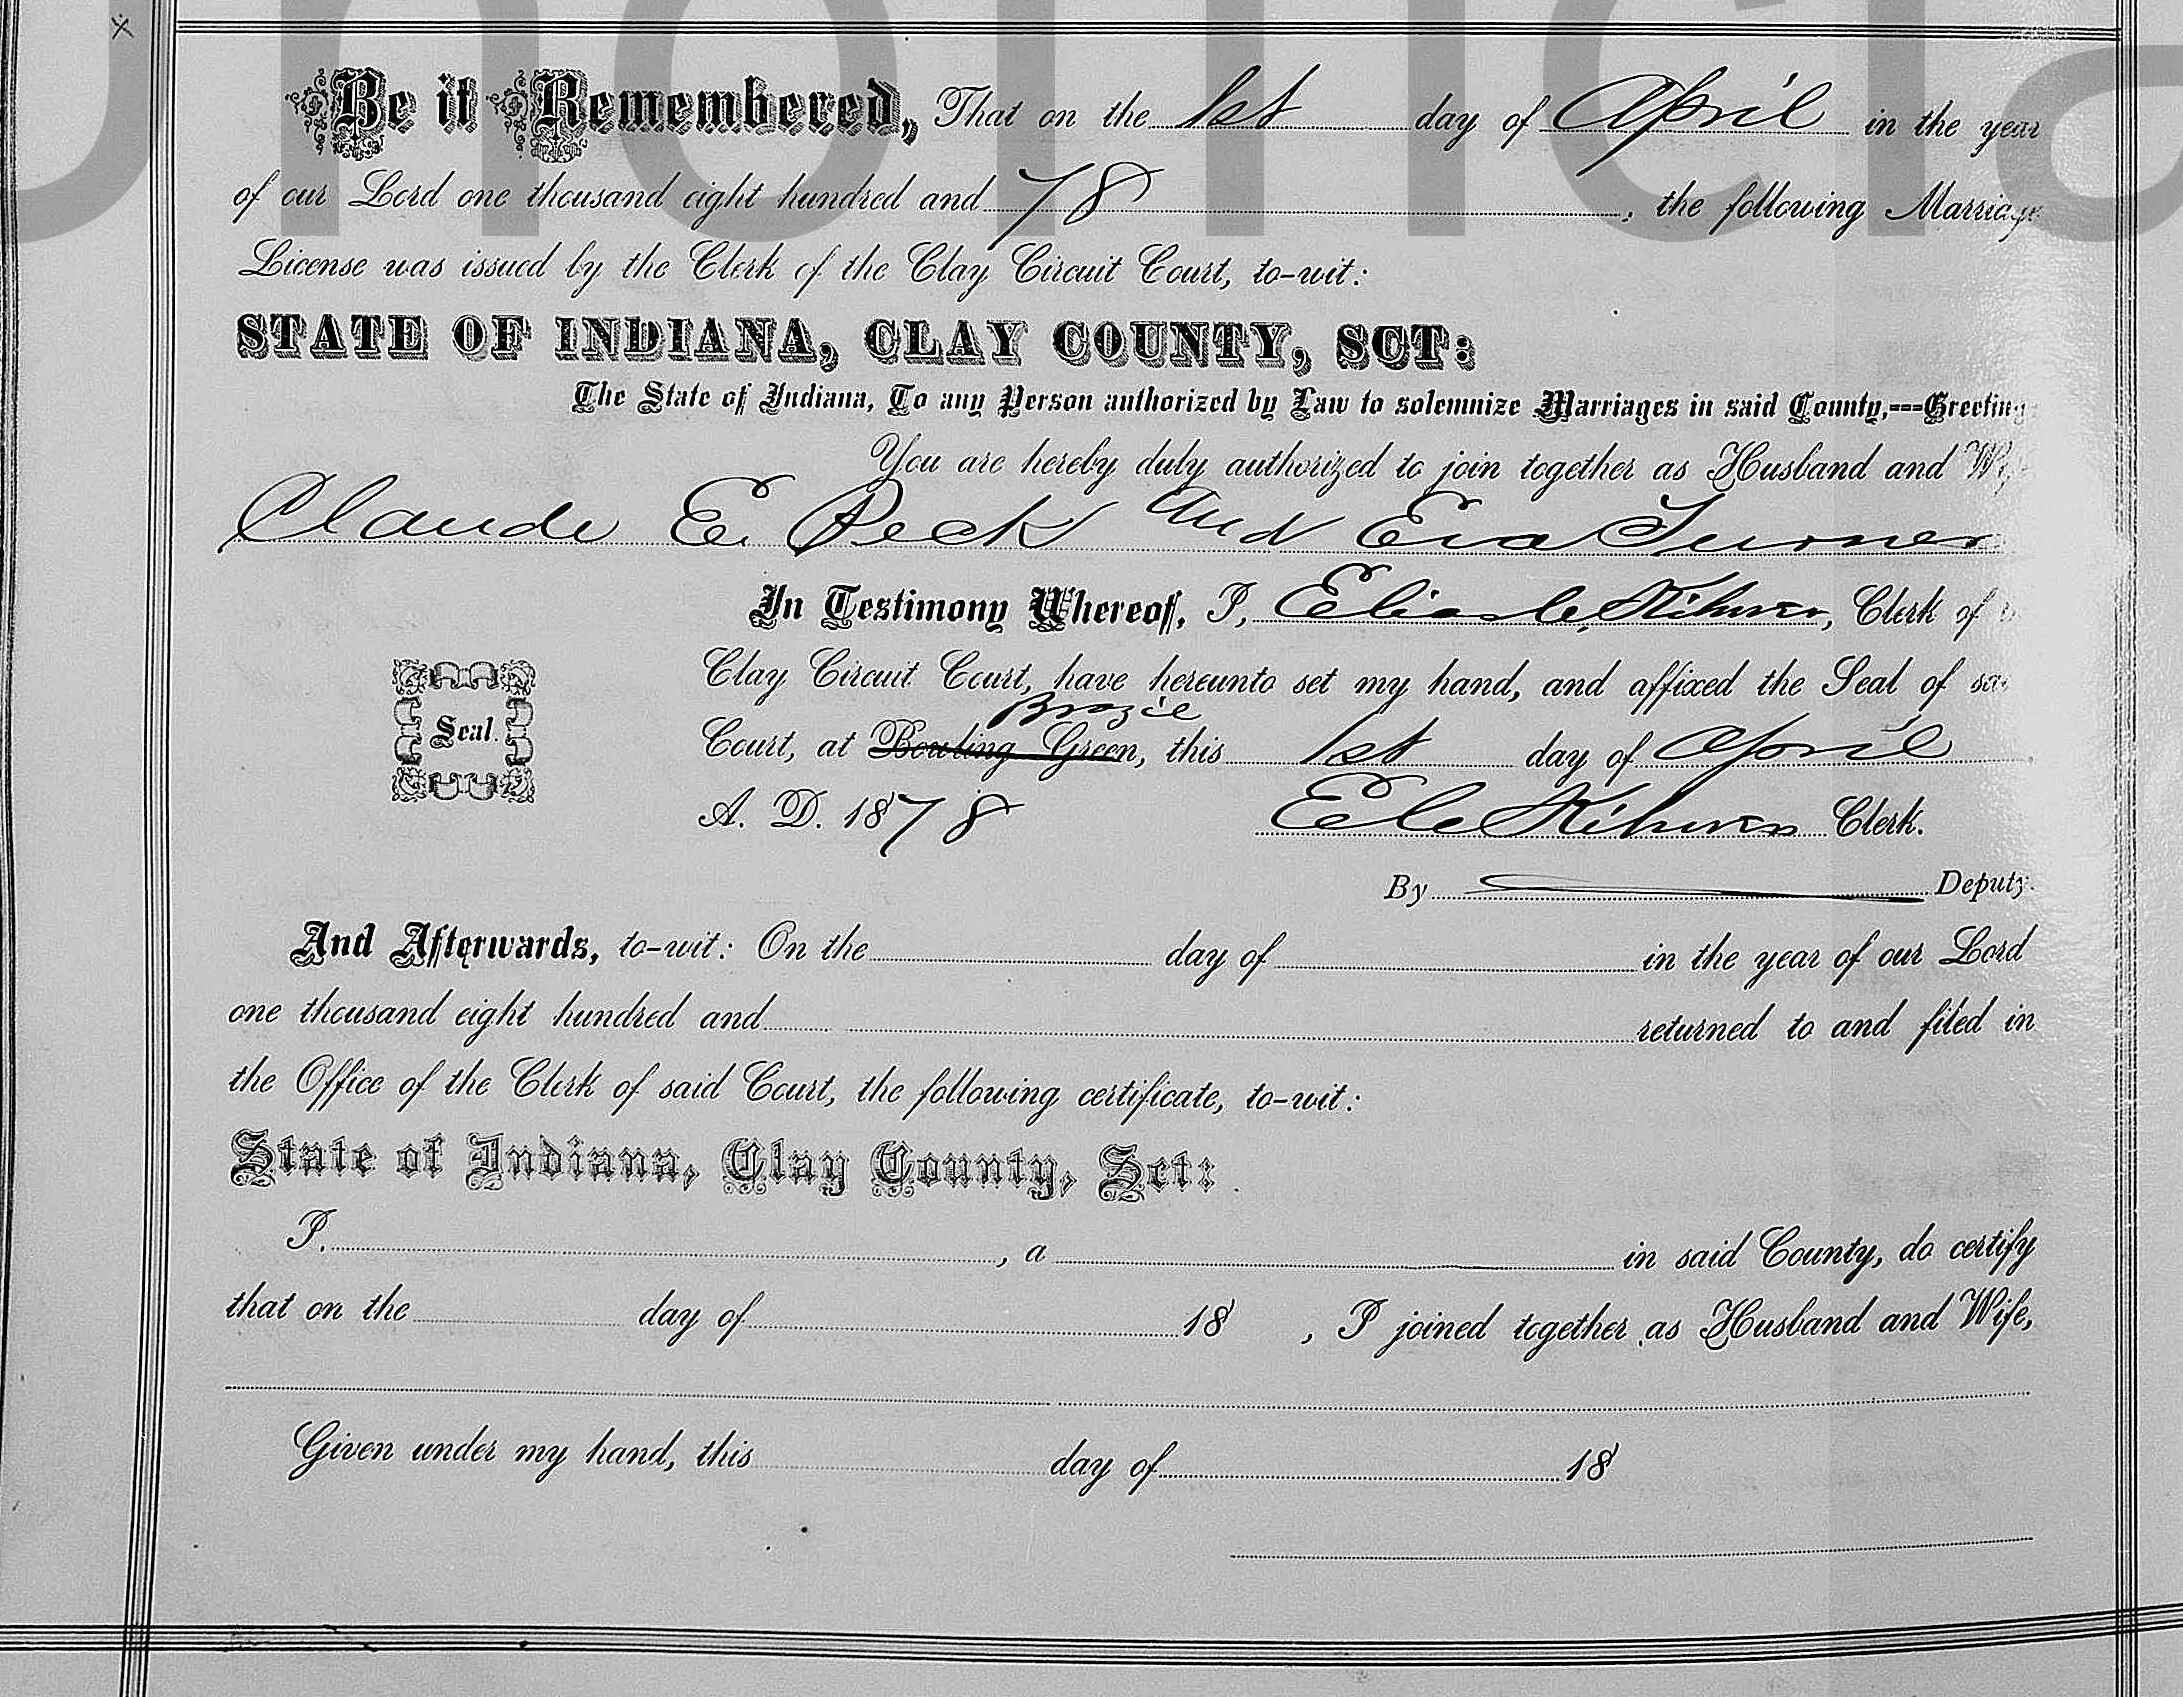 Unofficia
Be it Remembered, That on the 1st day of April in the year
of our Lord one thousand eight hundred and 78, the following Marriage
License was issued by the Clerk of the Clay Circuit Court, to-wit:
STATE OF INDIANA, CLAY COUNTY, SCT:
The State of Indiana, To any Person authorized by Law to solemnize Marriages in said County,---Greeting
You are hereby duly authorized to join together as Husband and Wife
Claude E. Peck and Eva Turner
In Testimony Whereof, I, Elias C. , Clerk of
Clay Circuit Court, have hereunto set my hand, and affixed the Seal of sai
Brazil
Court, at Bowling Green, this 1st day of April
Seal.
A. D. 1878 E C Clerk.
By Deputy.
And Afterwards, to-wit: On the day of in the year of our Lord
one thousand eight hundred and returned to and filed in
the Office of the Clerk of said Court, the following certificate, to-wit:
State of Indiana, Clay County, Sct:
I. , a in said County, do certify
that on the day of 18 , I joined together as Husband and Wife,
Given under my hand, this day of 18